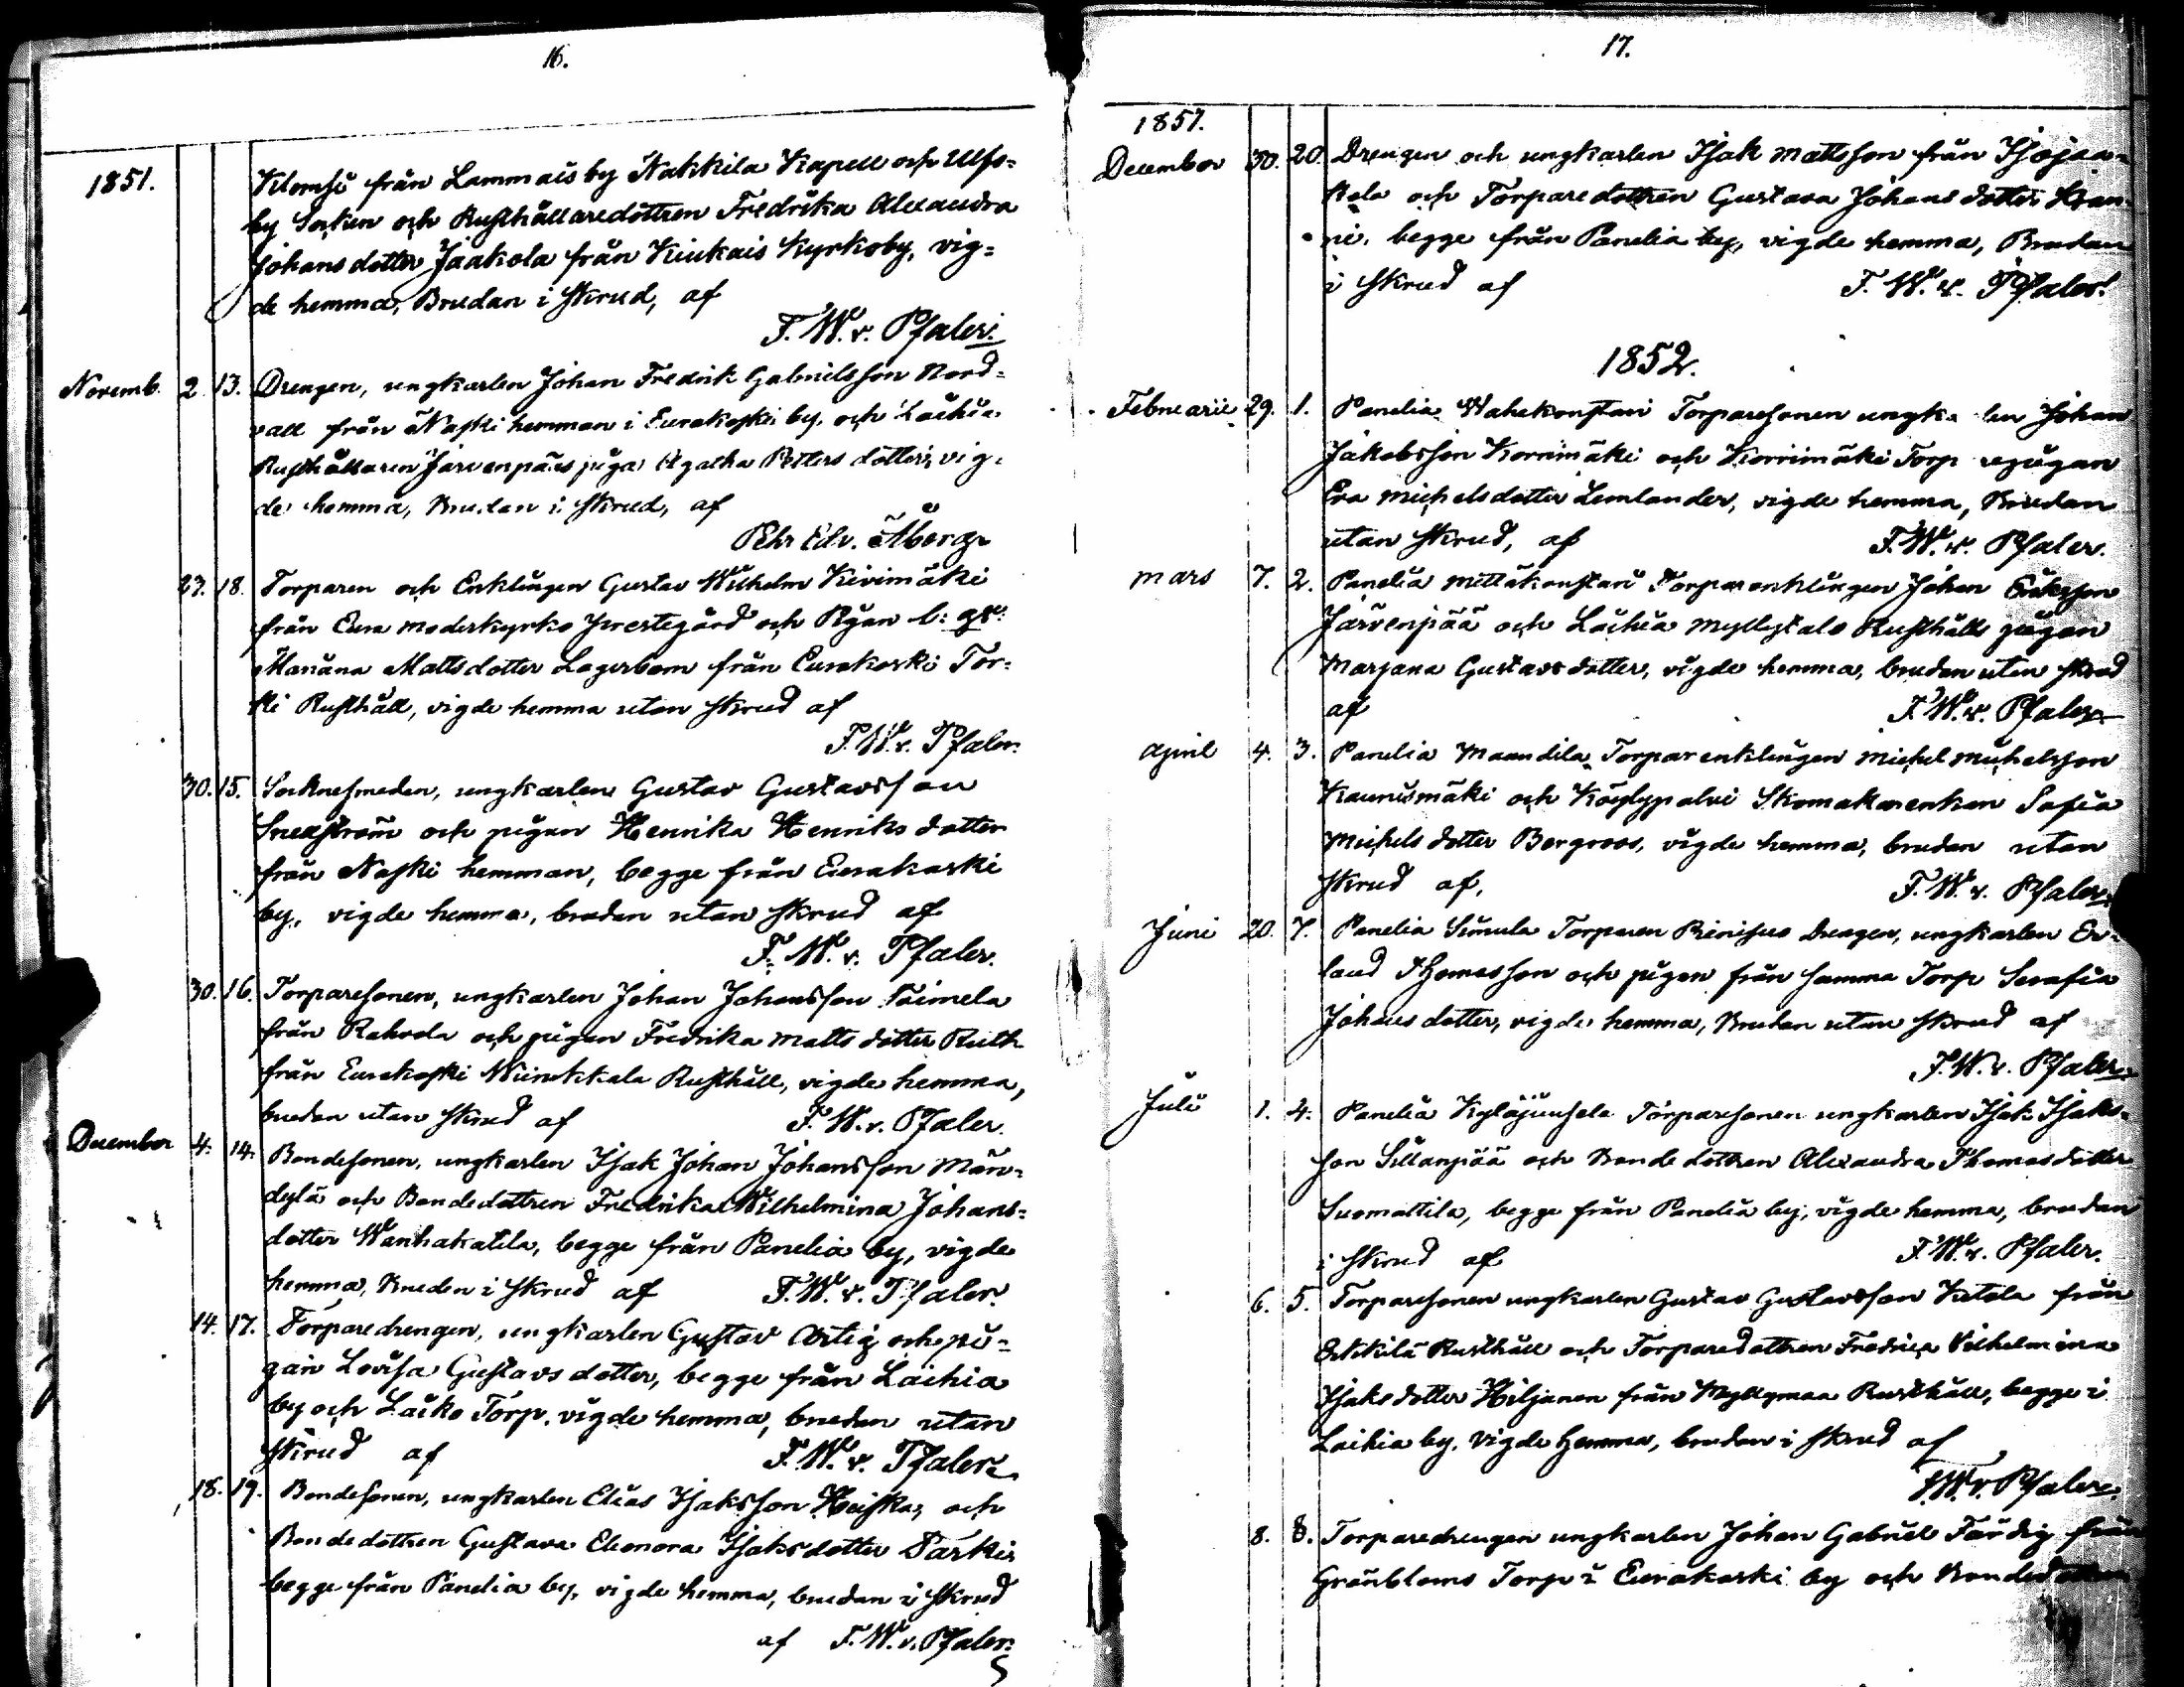 16.
1851.
Klomsi från Lammais by Nakkila Kapell och Ulfs-
by Socken och Rusthållaredottren Fredrika Alexandra
Johansdotter Jaakola från Kiukais Kyrkoby, vig-
de hemma, Brudan i skrud, af
F. W. v. Pfaler.
Novemb. 2. 13. Drengen, ungkarlen Johan Fredrik Gabrielsson Nord-
vall från Naski hemman i Eurakoski by, och Laihia
Rusthållaren Järvenpääs piga Agatha Petters dotter, vig-
de hemma, Brudan i skrud, af
Pehr Edv. Åberg
23. 18. Torparen och Enklingen Gustav Wilhelm Kivimäki
från Eura moderkyrko Prestegård och Pigan
Mariana Mattsdotter Lagerbom från Eurakoski Tor-
ki Rusthåll, vigde hemma utan skrud af
F. W. v. Pfaler.
30. 15. Socknesmeden, ungkarlen Gustav Gustavsson
och pigan Henrika Henriksdotter
från Naski hemman, begge från Eurakoski
by, vigde hemma, brudan utan skrud af
F. W. v. Pfaler.
30. 16. Torparesonen, ungkarlen Johan Johansson Taimela
från Rahvola och pigan Fredrika Mattsdotter Ruth
från Eurakoski Rusthåll, vigde hemma,
brudan utan skrud af F. W. v. Pfaler.
December 4. 14. Bondesonen, ungkarlen Isak Johan Johansson Män-
dylä och Bondedottren Fredrika Wilhelmina Johans-
dotter Wanhakatila, begge från Panelia by, vigde
hemma, Bruden i skrud af F. W. v. Pfaler.
14. 17. Torparedrengen, ungkarlen Gustav Artig och pi-
gan Lovisa Gustavsdotter, begge från Laihia
by och Laiko Torp, vigde hemma, brudan utan
skrud af F. W. v. Pfaler.
18. 19. Bondesonen, ungkarlen Elias Isaksson Heiska, och
Bondedottren Gustava Eleonora Isaksdotter Parkis
begge från Panelia by, vigde hemma, brudan i skrud
af F. W. v. Pfaler.
17.
1851.
December 30. 20. Drengen och ungkarlen Isak Mattsson från
och Torparedottren Gustava Johansdotter
begge från Panelia by, vigde hemma, Brudan
i skrud af F. W. v. Pfaler.
1852.
Februarii 29. 1. Panelia Torparesonen Johan
Jakobsson Korrimäki och Korrimäki Torp
Eva Michelsdotter Lemlander, vigde hemma, Brudan
utan skrud, af F. W. v. Pfaler.
Mars 7. 2. Panelia Torparenklingen Johan Eriksson
Järvenpää och Laihia Rusthålls pigan
Marjana Gustavsdotter, vigde hemma, brudan utan skrud
af F. W. v. Pfaler.
April 4. 3. Panelia Maandila Torparenklingen Michel Michelsson
Kaunismäki och Köylypolvi Skomakarenkan Sofia
Michelsdotter Bergroos, vigde hemma, brudan utan
skrud af, F. W. v. Pfaler.
Juni 20. 7. Panelia Simula Torparen Drengen, ungkarlen Er-
land Thomasson och pigan från samma Torp Serafia
Johansdotter, vigde hemma, Brudan utan skrud af
F. W. v. Pfaler.
Juli 1. 4. Panelia Torparesonen ungkarlen Isak Isaks-
son Sillanpää och Bondedottren Alexandra Thomasdotter
Suomattila, begge från Panelia by, vigde hemma, brudan
i skrud af F. W. v. Pfaler.
6. 5. Torparesonen ungkarlen Gustav Gustavsson Ketola från
Rusthåll och Torparedottren Fredrica Vilhelmina
Isaksdotter Hiljanen från Myllymaa Rusthåll, begge i
Laihia by, Vigde hemma, brudan i skrud af
F. W. v. Pfaler.
8. 8. Torparedrengen ungkarlen Johan Gabriel Färdig från
Grånbloms Torp i Eurakoski by och Bondedottren